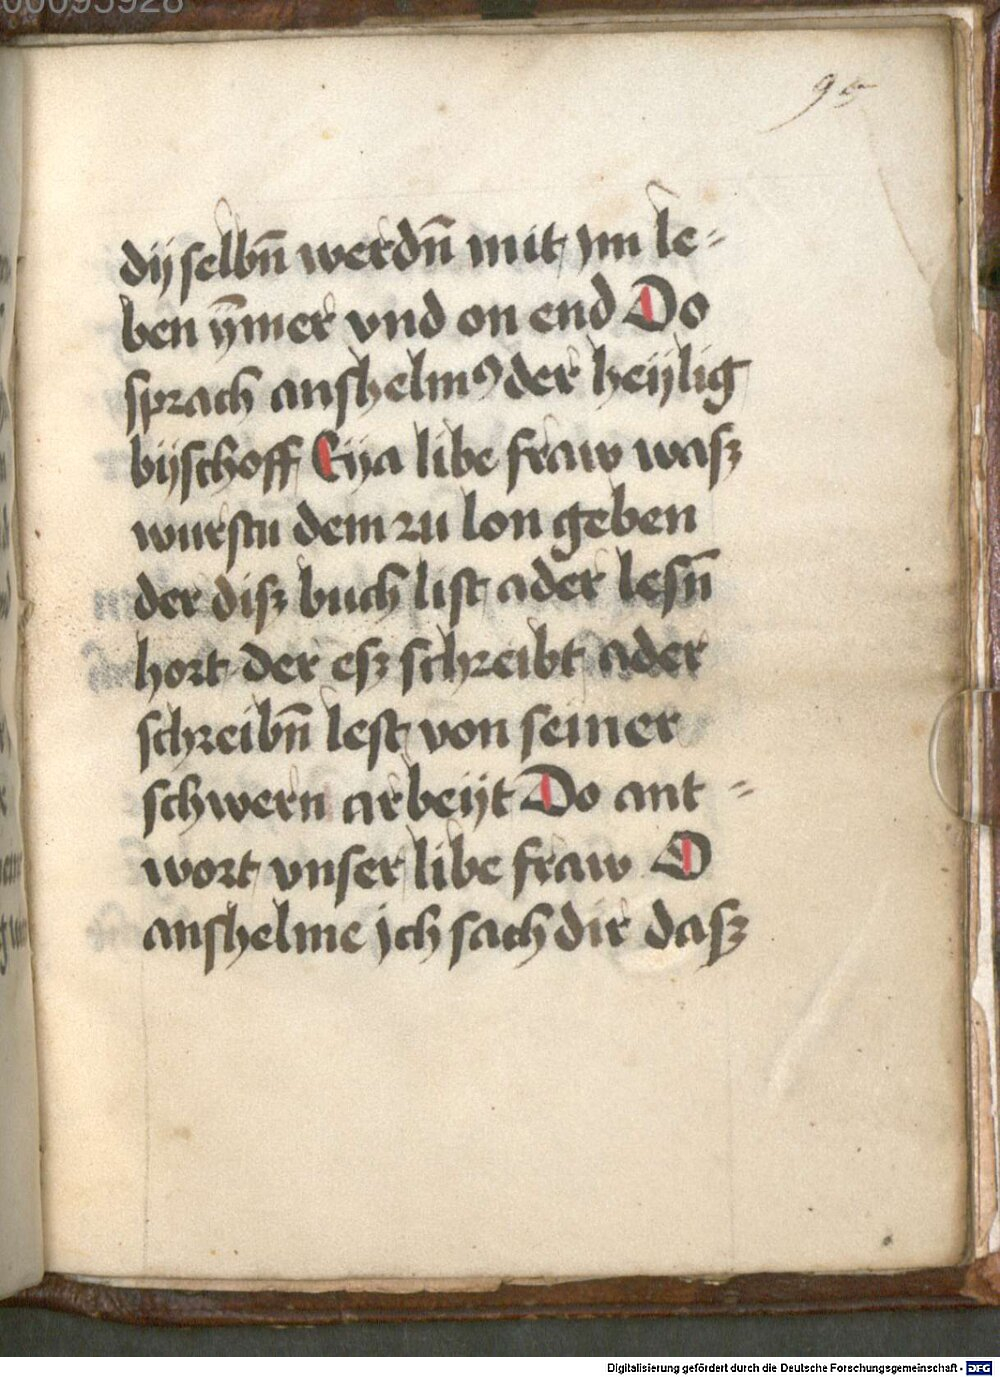 95
dij selbn̄ werdn̄ mit ym le-
ben ȳmer vnd on end Do
sprach anshelmꝰ der heijlig
bijschoff Eija libe fraw wasz
wurstu dem zu lon geben
der disz buch list ader lesn̄
hort der esz schreibt ader
schreibn̄ lest von seiner
schwern arbeijt Do ant-
wort vnser libe fraw O
anshelme jch sach dir dasz
Digitalisierung gefördert durch die Deutsche Forschungsgemeinschaft - DFG